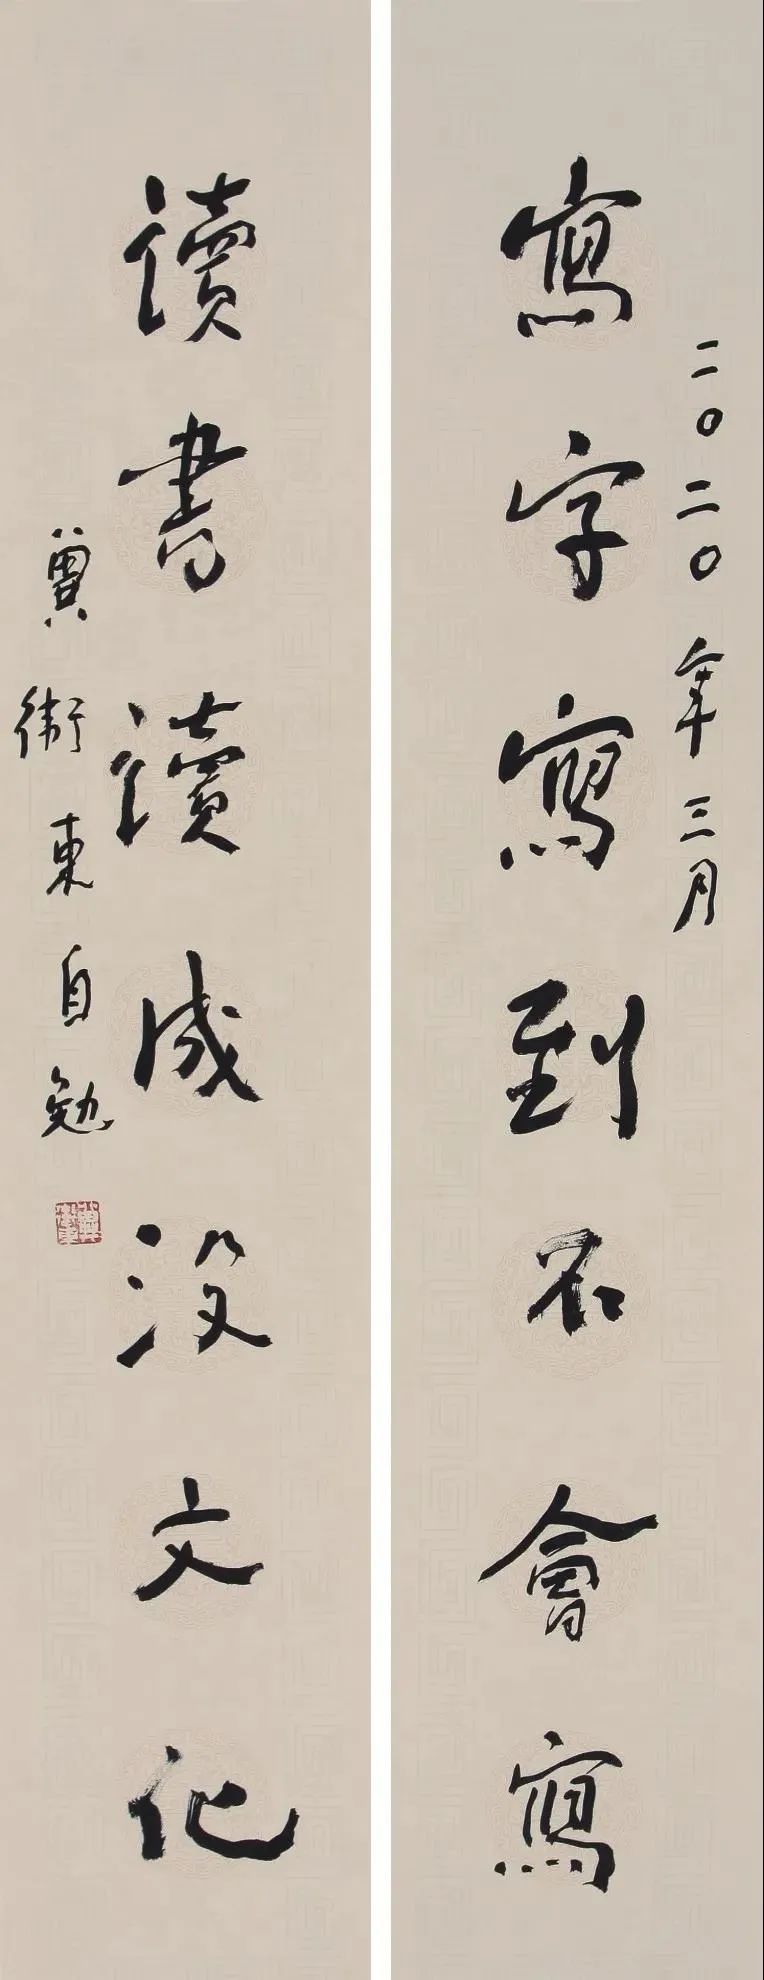 二〇二〇年三月
寫字寫到不會寫
讀書讀成沒文化
冀衛東自勉